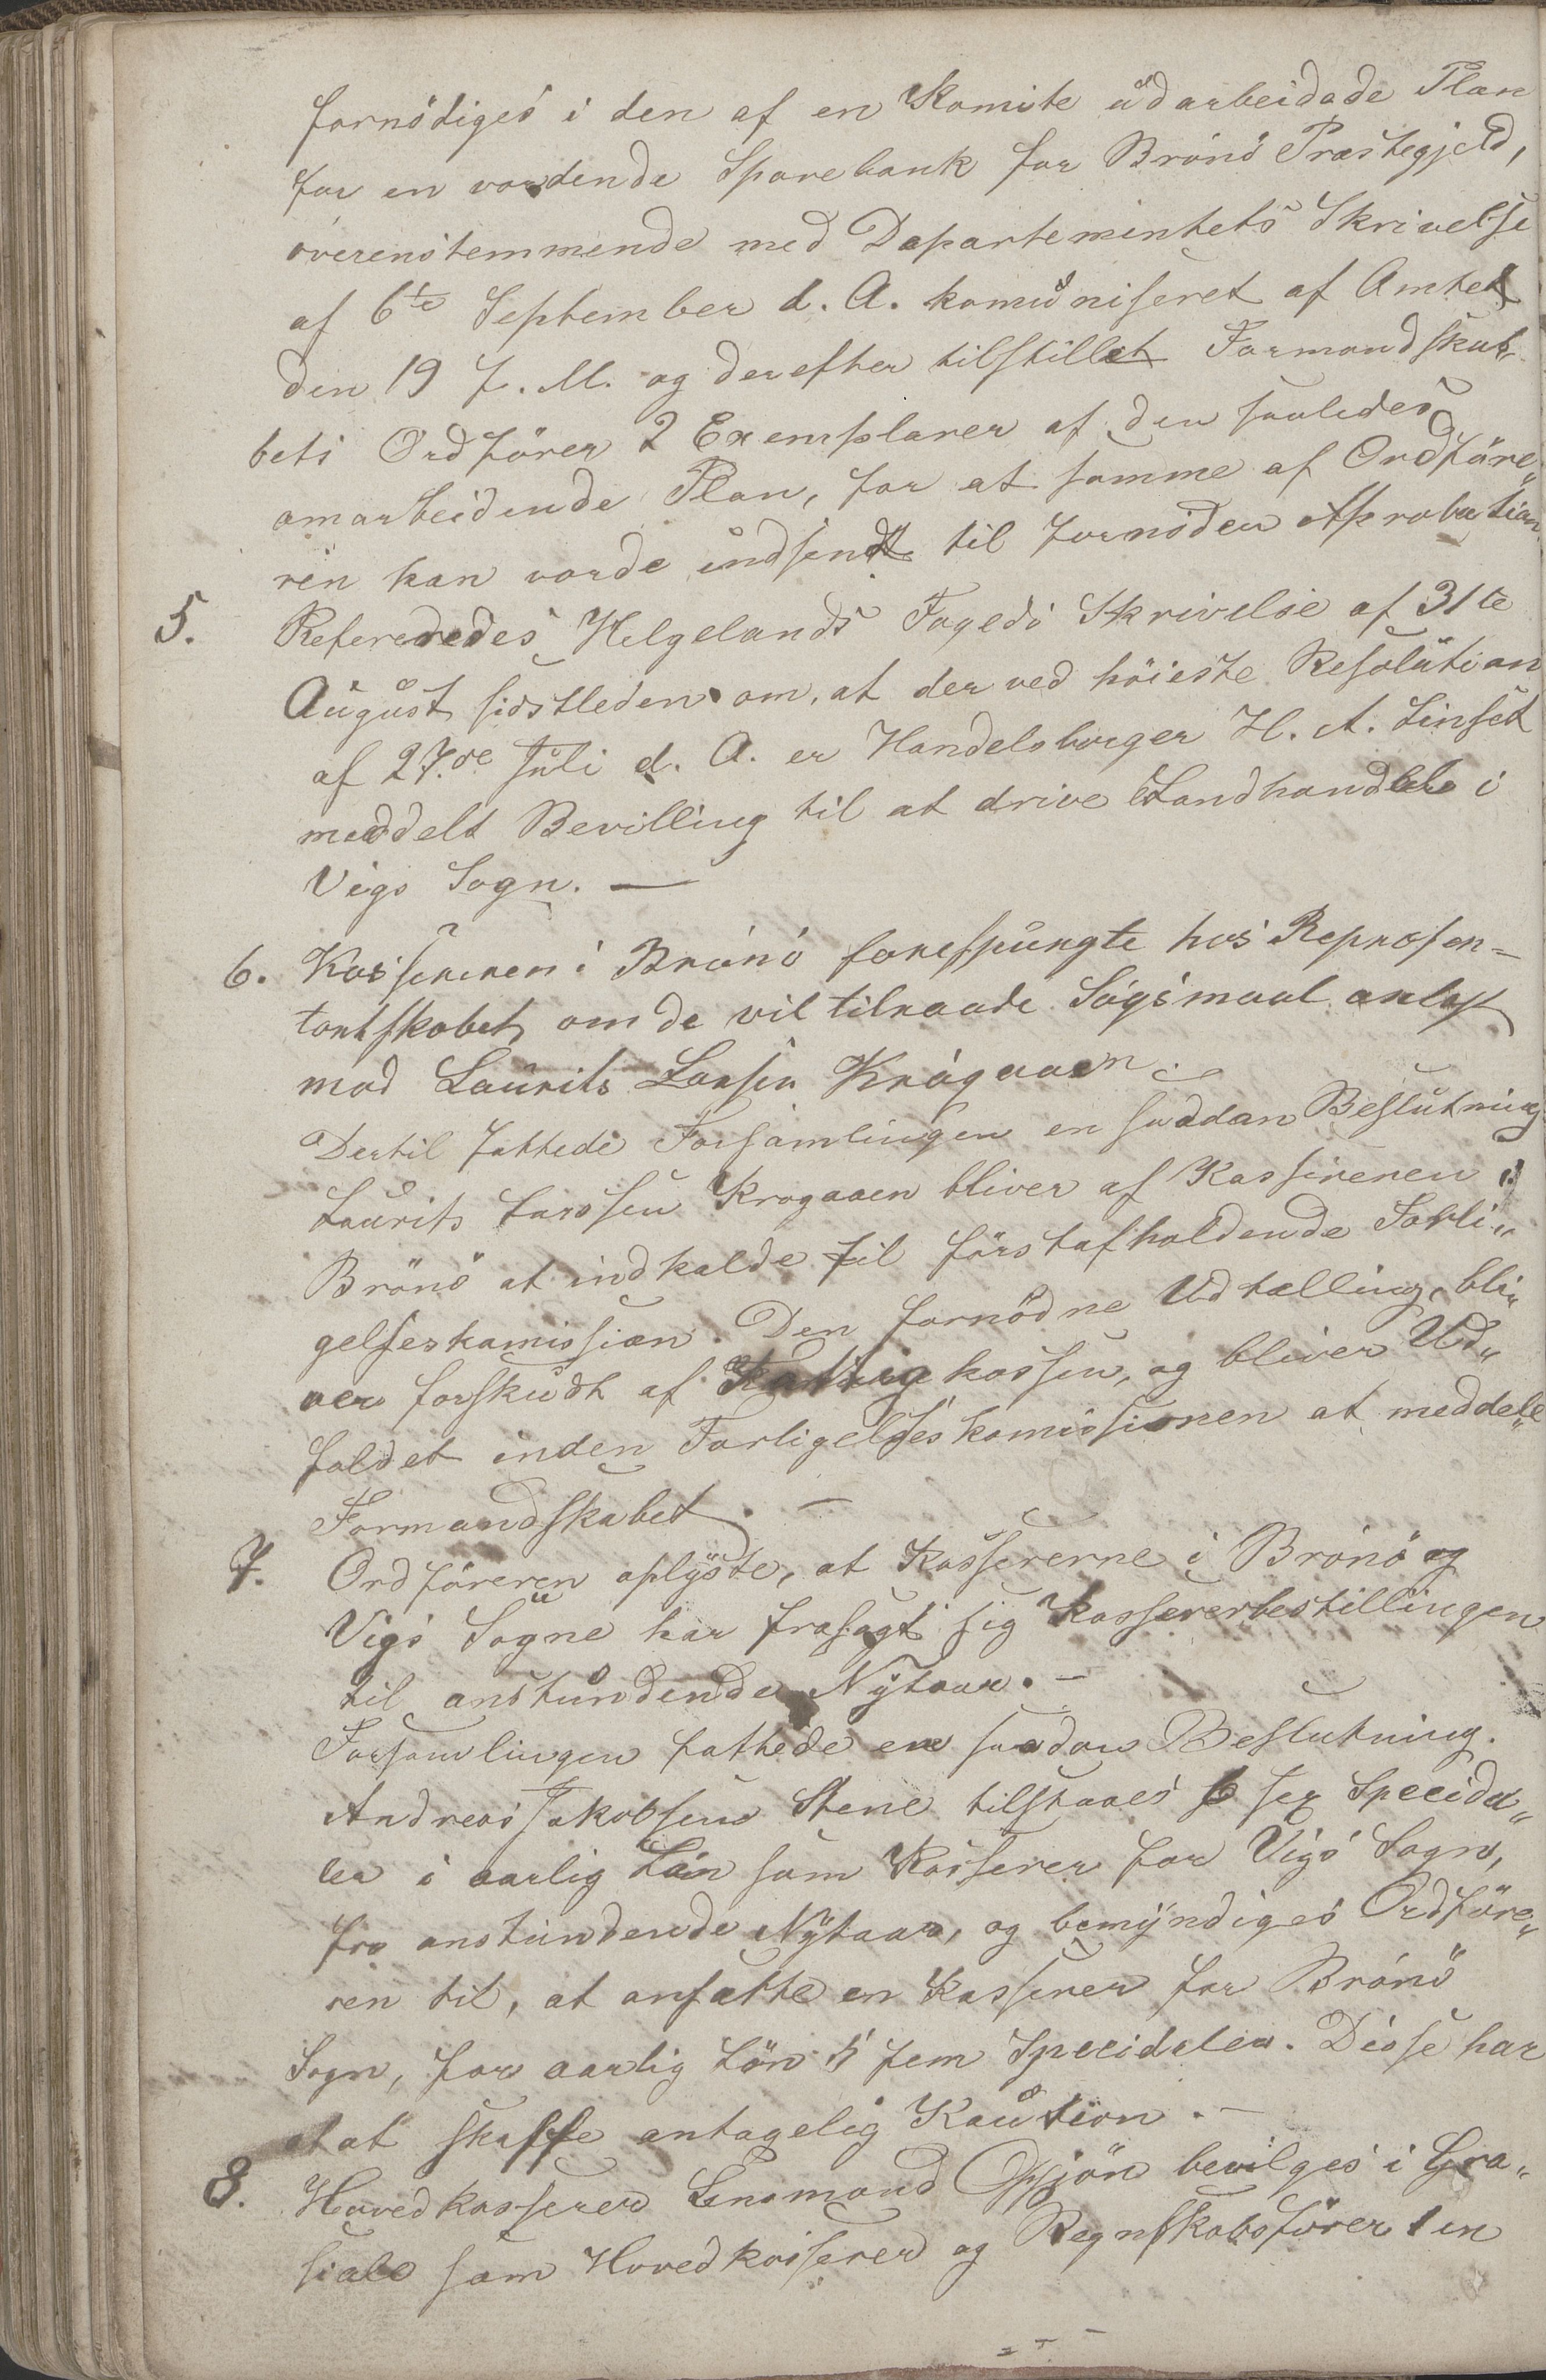 fornödiges i den af en Komite udarbeidade Plan
for en vordende Sparebank for Brönö Præstegjeld,
overenstemmende med Departementets Skrivelse
af 6te September d. A. komuniseret af Amtet
den 19 f. M. og derefter tilstillet Formandskab„
bets Ordförer 2 Exemplarer af den saaledes
omarbeidende Plan, for at samme af Ordföre„
ren kan vorde indsendt til fornöden Aprobation
5. Refereredes Helgelands Fogeds Skrivelse af 31te
August sidstleden om, at der ved höieste Resolution
af 27.de Juli d. A. er Handelsborger H. A. Linset
meddelt Bevilling til at drive Landhandel i
Vigs Sogn. —
6. Kassereren i Brönö forespurgte hos Represen=
tantskabet om de vil tilraade Sögsmaal anlagt
mod Laurits Larsen Krogaaen.
Dertil fattede Forsamlingen en saadan Beslutning
Laurits Larssen Krogaaen bliver af Kasserenen i
Brönö at indkalde til förstafholdende Forli„
gelseskomission. Den fornödne Udtælling, bli„
ver forskudt af kassen, og bliver Ud„
faldet inden Forligelseskomissionen at meddele
Formandskabet. —
7. Ordföreren oplyste, at Kassererne i Brönö og
Vigs Sogne har frasagt sig Kassererbestillingen
til anstundende Nytaar. —
Forsamlingen fattede en saadan Beslutning.
Andreas Jakobsen Stene tilstaaes 6 sex Specida„
ler i aarlig Lön som Kasserer for Vigs Sogn,
fra anstundende Nytaar, og bemyndiges Ordföre„
ren til, at ansætte en Kasserer for Brönö
Sogn, for aarlig Lön 5 fem Specidaler. Disse har
at skaffe antagelig Kaution. —
8. Hovedkasserer Lensmand Opsjön bevilges i Gra„
siale som Hovedkasserer og Regnskabsförer 1 en